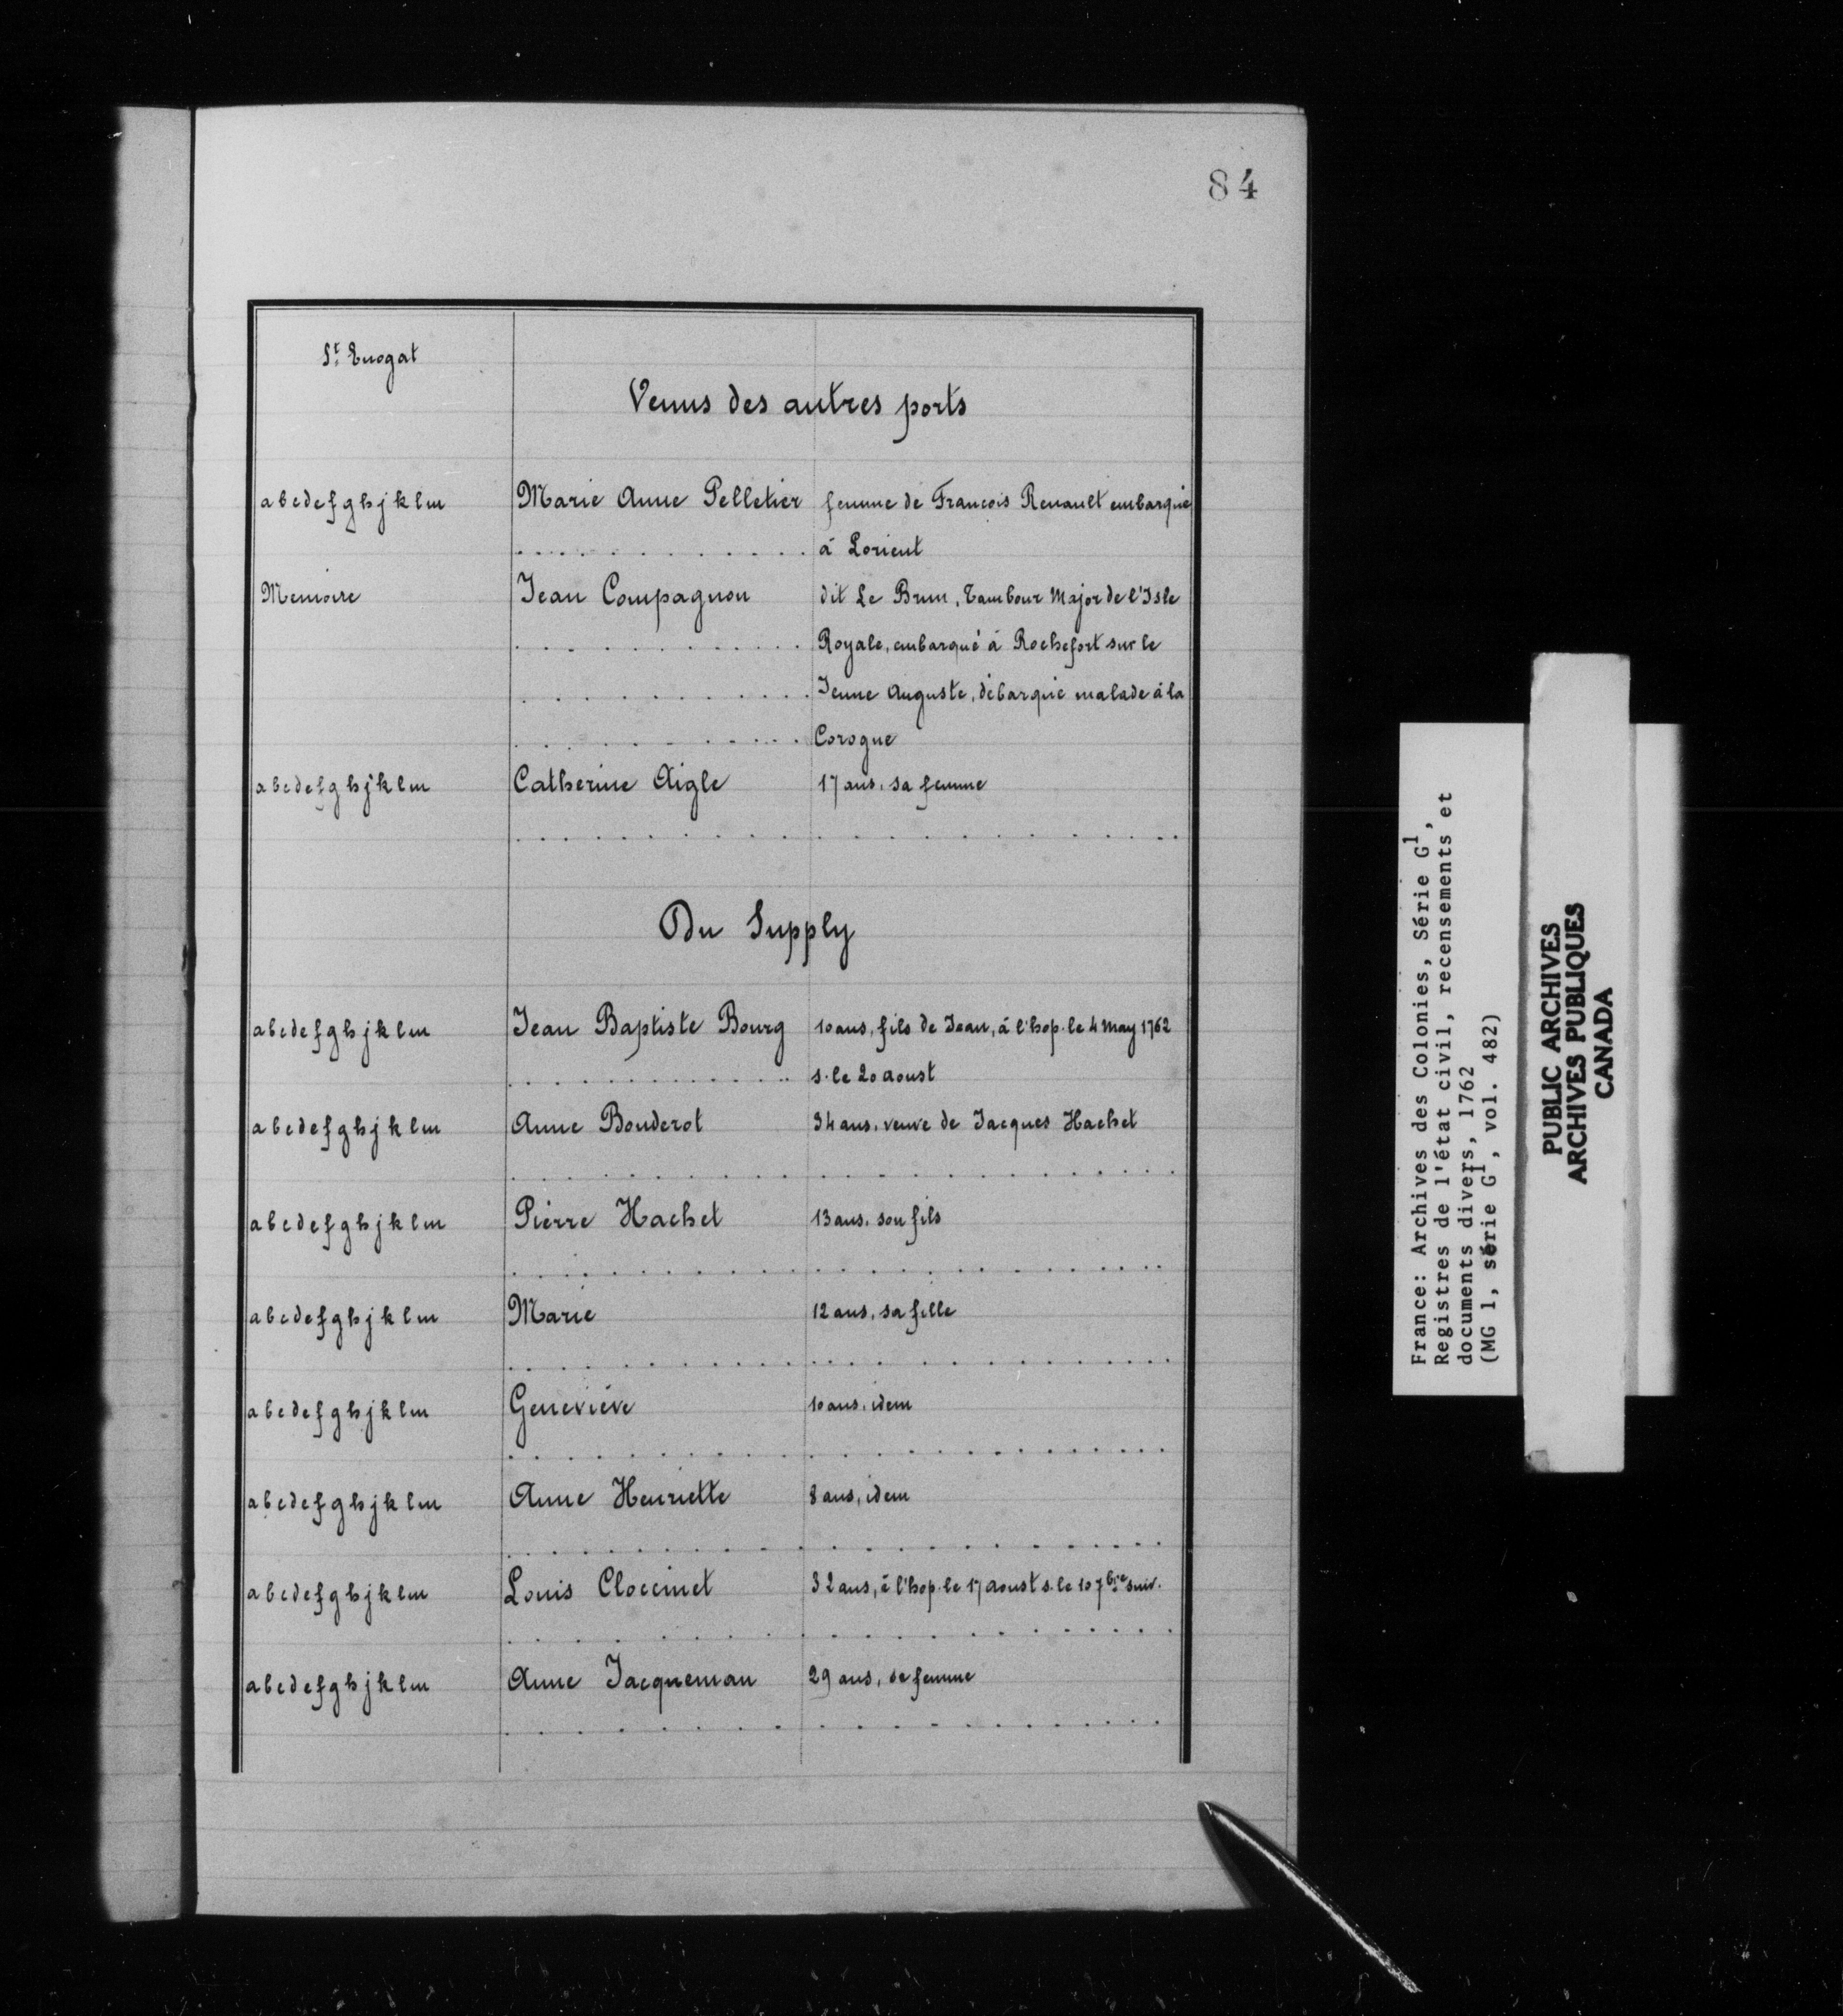 84
St Enogat
Venus des autres ports
abcdefghjklm Marie Anne Pelletier femme de Francois Renault embarqué
à Lorient
Memoire Jean Compagnon dit Le Brun, Tambour Major de l'Isle
Royale, embarqué à Rochefort sur le
Jeune Auguste, débarqué malade à la
Corogne
abcdefghjklm Catherine Aigle 17 ans, sa femme
Du Supply
abcdefghjklm Jean Baptiste Bourg 10 ans, fils de Jean, à l'hop. le 4 May 1762
s. le 20 aoust
abcdefghjklm Anne Bouderot 34 ans, veuve de Jacques Hachet
abcdefghjklm Pierre Hachet 13 ans, son fils
abcdefghjklm Marie 12 ans, sa fille
abcdefghjklm Geneviève 10 ans, idem
abcdefghjklm Anne Henriette 8 ans, idem
abcdefghjklm Louis Closcinet 32 ans, à l'hop. le 17 aoust s. le 10 7bre suiv.
abcdefghjklm Anne Jacqueman 29 ans, sa femme
France: Archives des Colonies, Série G1,
Registres de l'état civil, recensements et
documents divers, 1762
(MG 1, série G1, vol. 482)
PUBLIC ARCHIVES
ARCHIVES PUBLIQUES
CANADA